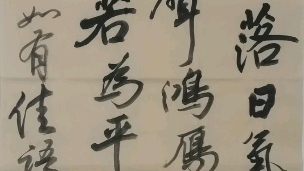 落日氣
聲鴻雁
若為平
如有佳語